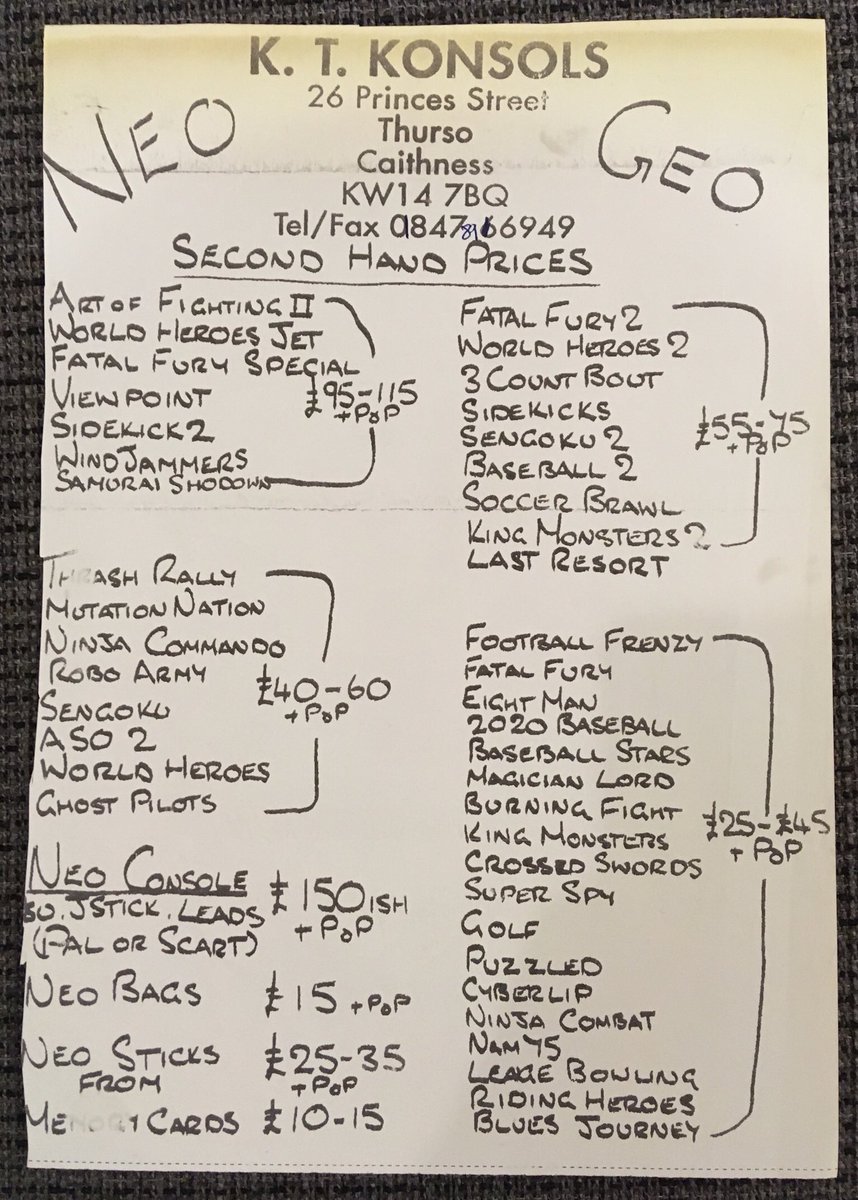 K. T. KONSOLS
26 Princes Street
Thurso
Caithness
KW14 7BQ
Tel/Fax 0184766949
NEO GEO
SECOND HAND PRICES
ART OF FIGHTING II
WORLD HEROES JET
FATAL FURY SPECIAL
VIEWPOINT
SIDEKICK 2
WINDJAMMERS
SAMURAI SHODOWN
£95-115
+PoP
FATAL FURY 2
WORLD HEROES 2
3 COUNT BOUT
SIDEKICKS
SENGOKU 2
BASEBALL 2
SOCCER BRAWL
KING MONSTERS 2
LAST RESORT
£55-75
+PoP
THRASH RALLY
MUTATION NATION
NINJA COMMANDO
ROBO ARMY
SENGOKU
ASO 2
WORLD HEROES
GHOST PILOTS
£40-60
+PoP
FOOTBALL FRENZY
FATAL FURY
EIGHT MAN
2020 BASEBALL
BASEBALL STARS
MAGICIAN LORD
BURNING FIGHT
KING MONSTERS
CROSSED SWORDS
SUPER SPY
GOLF
PUZZLED
CYBERLIP
NINJA COMBAT
NAM 75
LEAGE BOWLING
RIDING HEROES
BLUES JOURNEY
£25-£45
+ PoP
NEO CONSOLE £150ISH
JSTICK. LEADS + PoP
(PAL OR SCART)
NEO BAGS £15 +PoP
NEO STICKS £25-35
FROM +PoP
CARDS £10-15